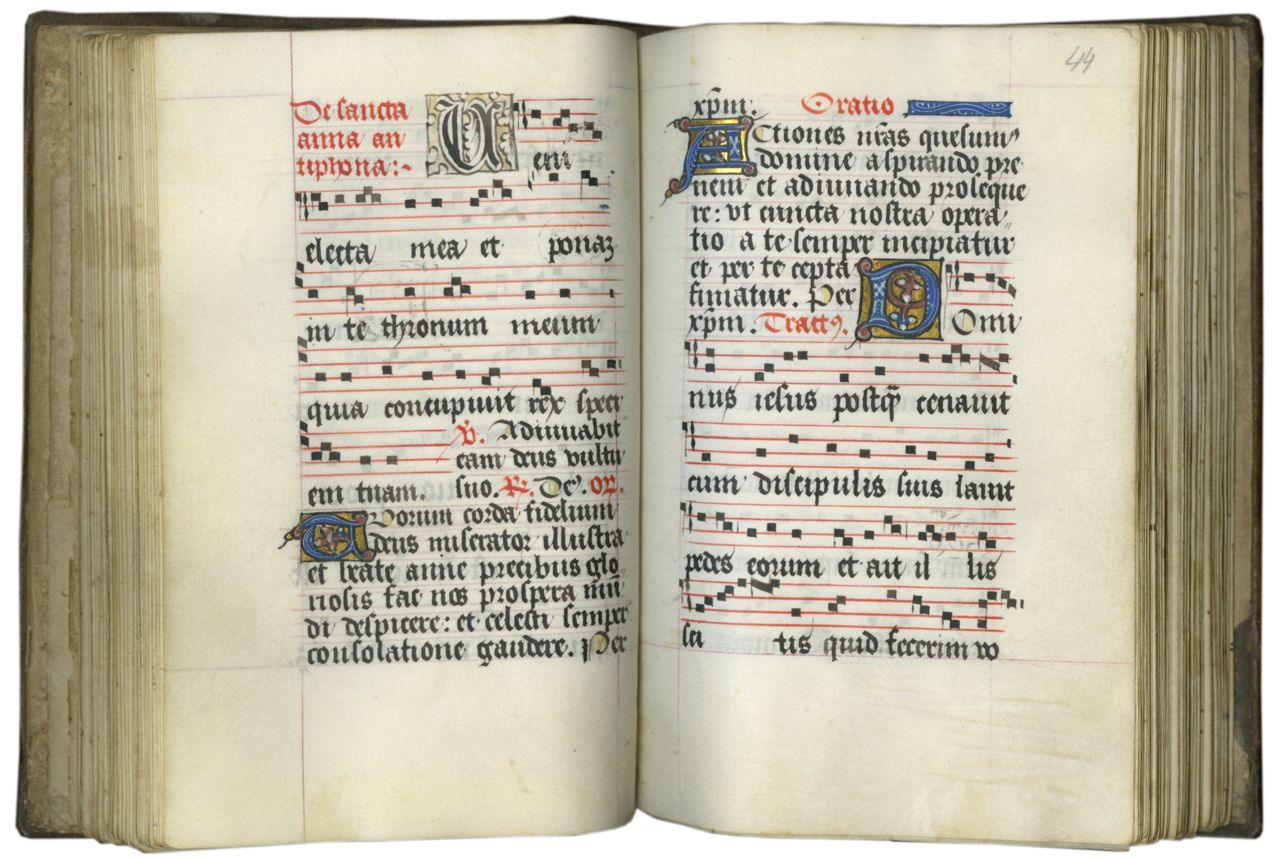 De sancta
anna an
tiphona:~
Ueni
electa mea et ponaꝫ
in te thronum meum
quia concupiuit rex speci
em tuam.
℣. Adiuuabit
eam deus vultu
suo. ℟. De9. or̄.
Deorum corda fidelium
deus miserator illustra
et beate anne precibus glo
riosis fac nos prospera mū
di despicere: et celesti semper
consolatione gaudere. Per
44
xp̄m. Oratio
Actiones nr̄as quesum9
domine aspirando pre
ueni et adiuuando proseque
re: vt cuncta nostra opera
tio a te semper incipiatur
et per te cepta
finiatur. Per
xp̄m. Tract9. Domi
nus iesus postq̄ cenauit
cum discipulis suis lauit
pedes eorum et ait il lis
sci tis quid fecerim vo